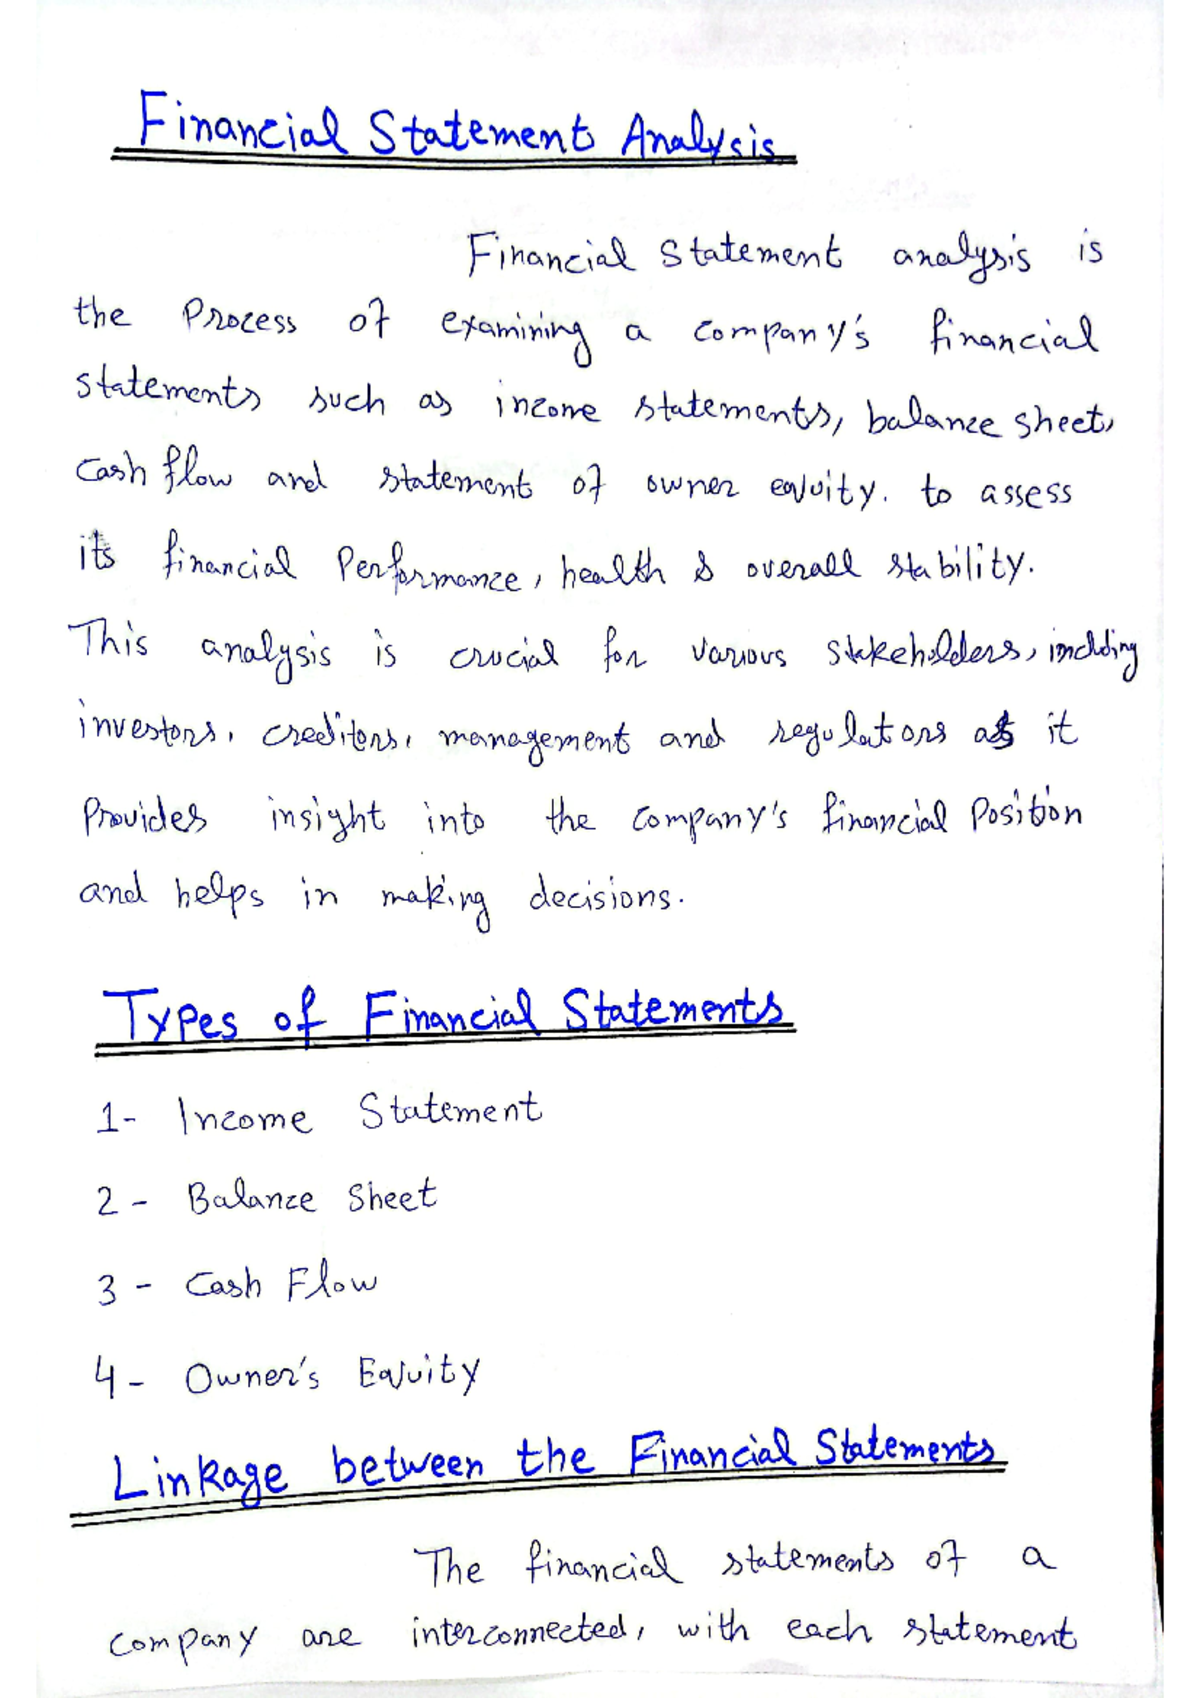 Financial Statement Analysis
Financial Statement analysis is
the Process of examining a company's financial
statements such as income statements, balance sheet,
cash flow and statement of owner equity. to assess
its financial Performance, health & overall stability.
This analysis is crucial for various stakeholders, including
investors, creditors, management and regulators as it
Provides insight into the company's financial Position
and helps in making decisions.
Types of Financial Statements
1- Income Statement
2- Balance Sheet
3- Cash Flow
4- Owner's Equity
Linkage between the Financial Statements
The financial statements of a
company are interconnected, with each statement